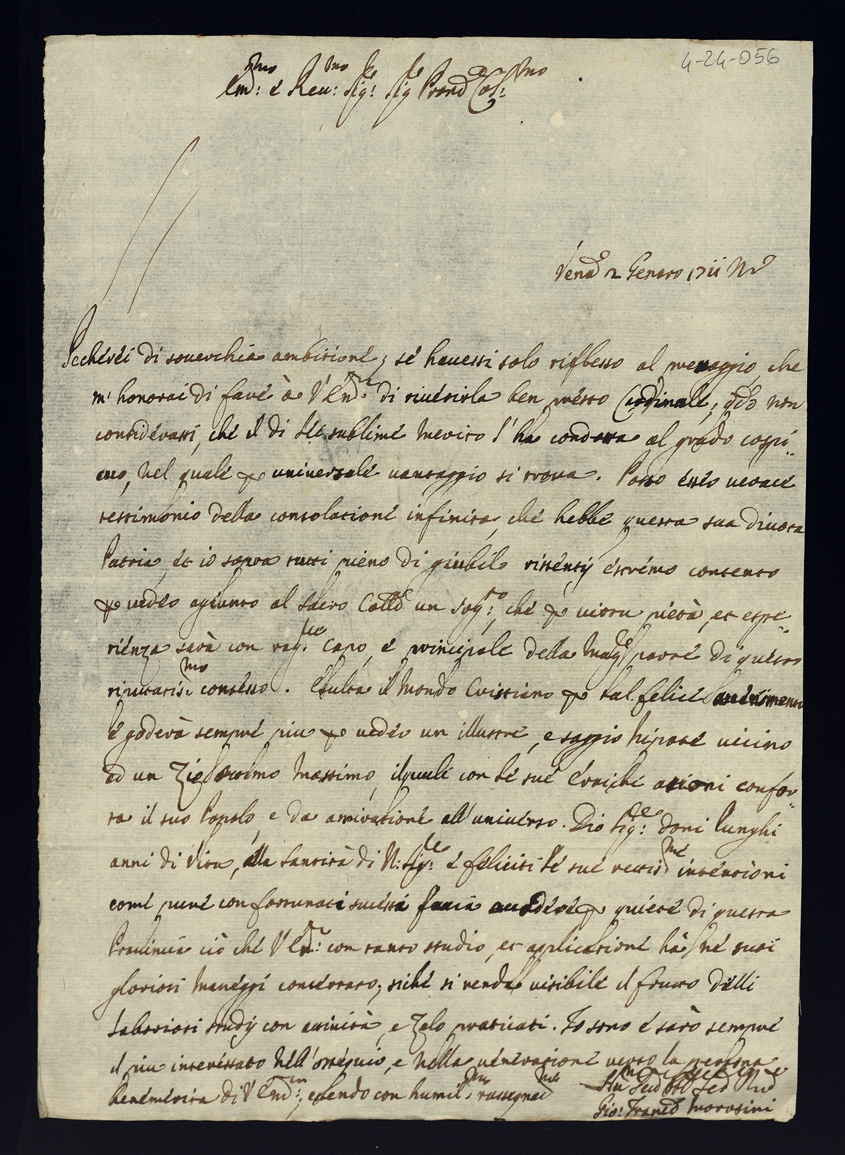 4-24-056
Em:mo e Reu:mo Sig:re Sig.re Prond Col:mo
Ven.a 2 Genaro 1711
Peccherei di souerchia ambitione, se hauessi solo riflesso al che
m'honorai di fare à V Em.a di riuerirla ben presto Cardinale, q.do non
considerassi, che il di Lei sublime merito l'ha condotta al grado
nel quale p universale uantaggio si troua. Posso esser uerace
testimonio della consolatione infinita, che hebbe questa sua diuota
Patria, et io sopra tutti pieno di giubilo risentÿ estremo contento
p ueder agiunto al Sacro Coll.o un Sog:to, che p uirtu pietà, et espe=
rienza sarà con rag.ne Capo, e principale della mag.r parte di questo
consesso. Esulta il Mondo Cristiano p tal felice
e goderà sempre piu p ueder un illustre, e saggio Nipote uicino
ad un Zio Massimo, il quale con le sue Eroiche azioni confor=
ta il suo Popolo, e da amiratione all'universo. Dio Sig:re doni lunghi
anni di Vita, alla Santità di N: Sig:re e feliciti le sue intentioni
come pure con fortunati successi faccia p quiete di questa
Prouincia ciò che V Em:a con tanto studio, et applicatione hà ne suoi
gloriosi maneggi concertato; siche si renda uisibile il frutto delli
laboriosi studÿ con attiuità, e Zelo praticati. Io sono e sarò sempre
il piu interessato nell'ossequio, e nella ueneratione uerso la persona
benemerita di V Em:a, essendo con humil.ma
Gio: Franc.o Morosini